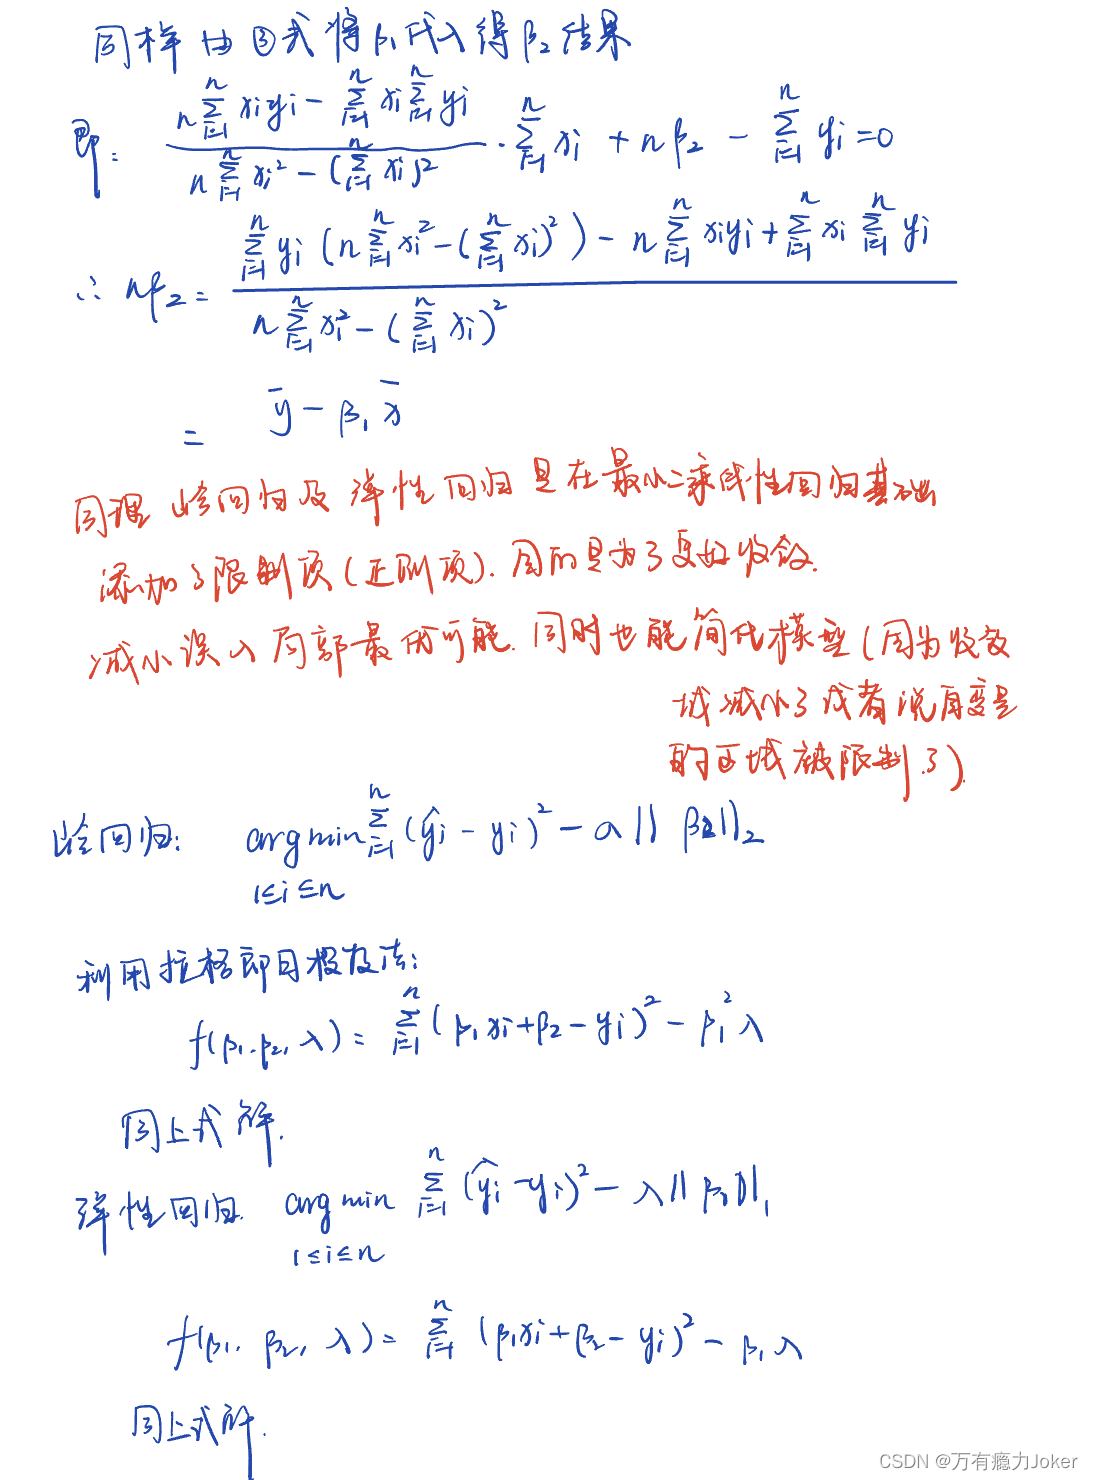 同样由③式将β₁代入得β₂结果
即: (n∑ⁿᵢ₌₁xᵢyᵢ − ∑ⁿᵢ₌₁xᵢ∑ⁿᵢ₌₁yᵢ) / (n∑ⁿᵢ₌₁xᵢ² − (∑ⁿᵢ₌₁xᵢ)²) · ∑ⁿᵢ₌₁xᵢ + nβ₂ − ∑ⁿᵢ₌₁yᵢ = 0
∴ nβ₂ = (∑ⁿᵢ₌₁yᵢ(n∑ⁿᵢ₌₁xᵢ² − (∑ⁿᵢ₌₁xᵢ)²) − n∑ⁿᵢ₌₁xᵢyᵢ + ∑ⁿᵢ₌₁xᵢ∑ⁿᵢ₌₁yᵢ) / (n∑ⁿᵢ₌₁xᵢ² − (∑ⁿᵢ₌₁xᵢ)²)
= ȳ − β₁x̄
同理 岭回归及弹性回归是在最小二乘线性回归基础
添加了限制项(正则项). 目的是为了更好收敛.
减小误入局部最优可能. 同时也能简化模型(因为收敛
域减小了或者说自变量
的区域被限制了).
岭回归: argmin ∑ⁿᵢ₌₁(ŷᵢ − yᵢ)² − α||β||₂
1≤i≤n
利用拉格朗日极值法:
f(β₁.β₂,λ) = ∑ⁿᵢ₌₁(β₁xᵢ+β₂−yᵢ)² − β₁²λ
同上式解.
弹性回归. argmin ∑ⁿᵢ₌₁(ŷᵢ−yᵢ)² − λ||β₁||₁
1≤i≤n
f(β₁, β₂, λ) = ∑ⁿᵢ₌₁(β₁xᵢ+β₂−yᵢ)² − β₁λ
同上式解.
CSDN @万有瘾力Joker